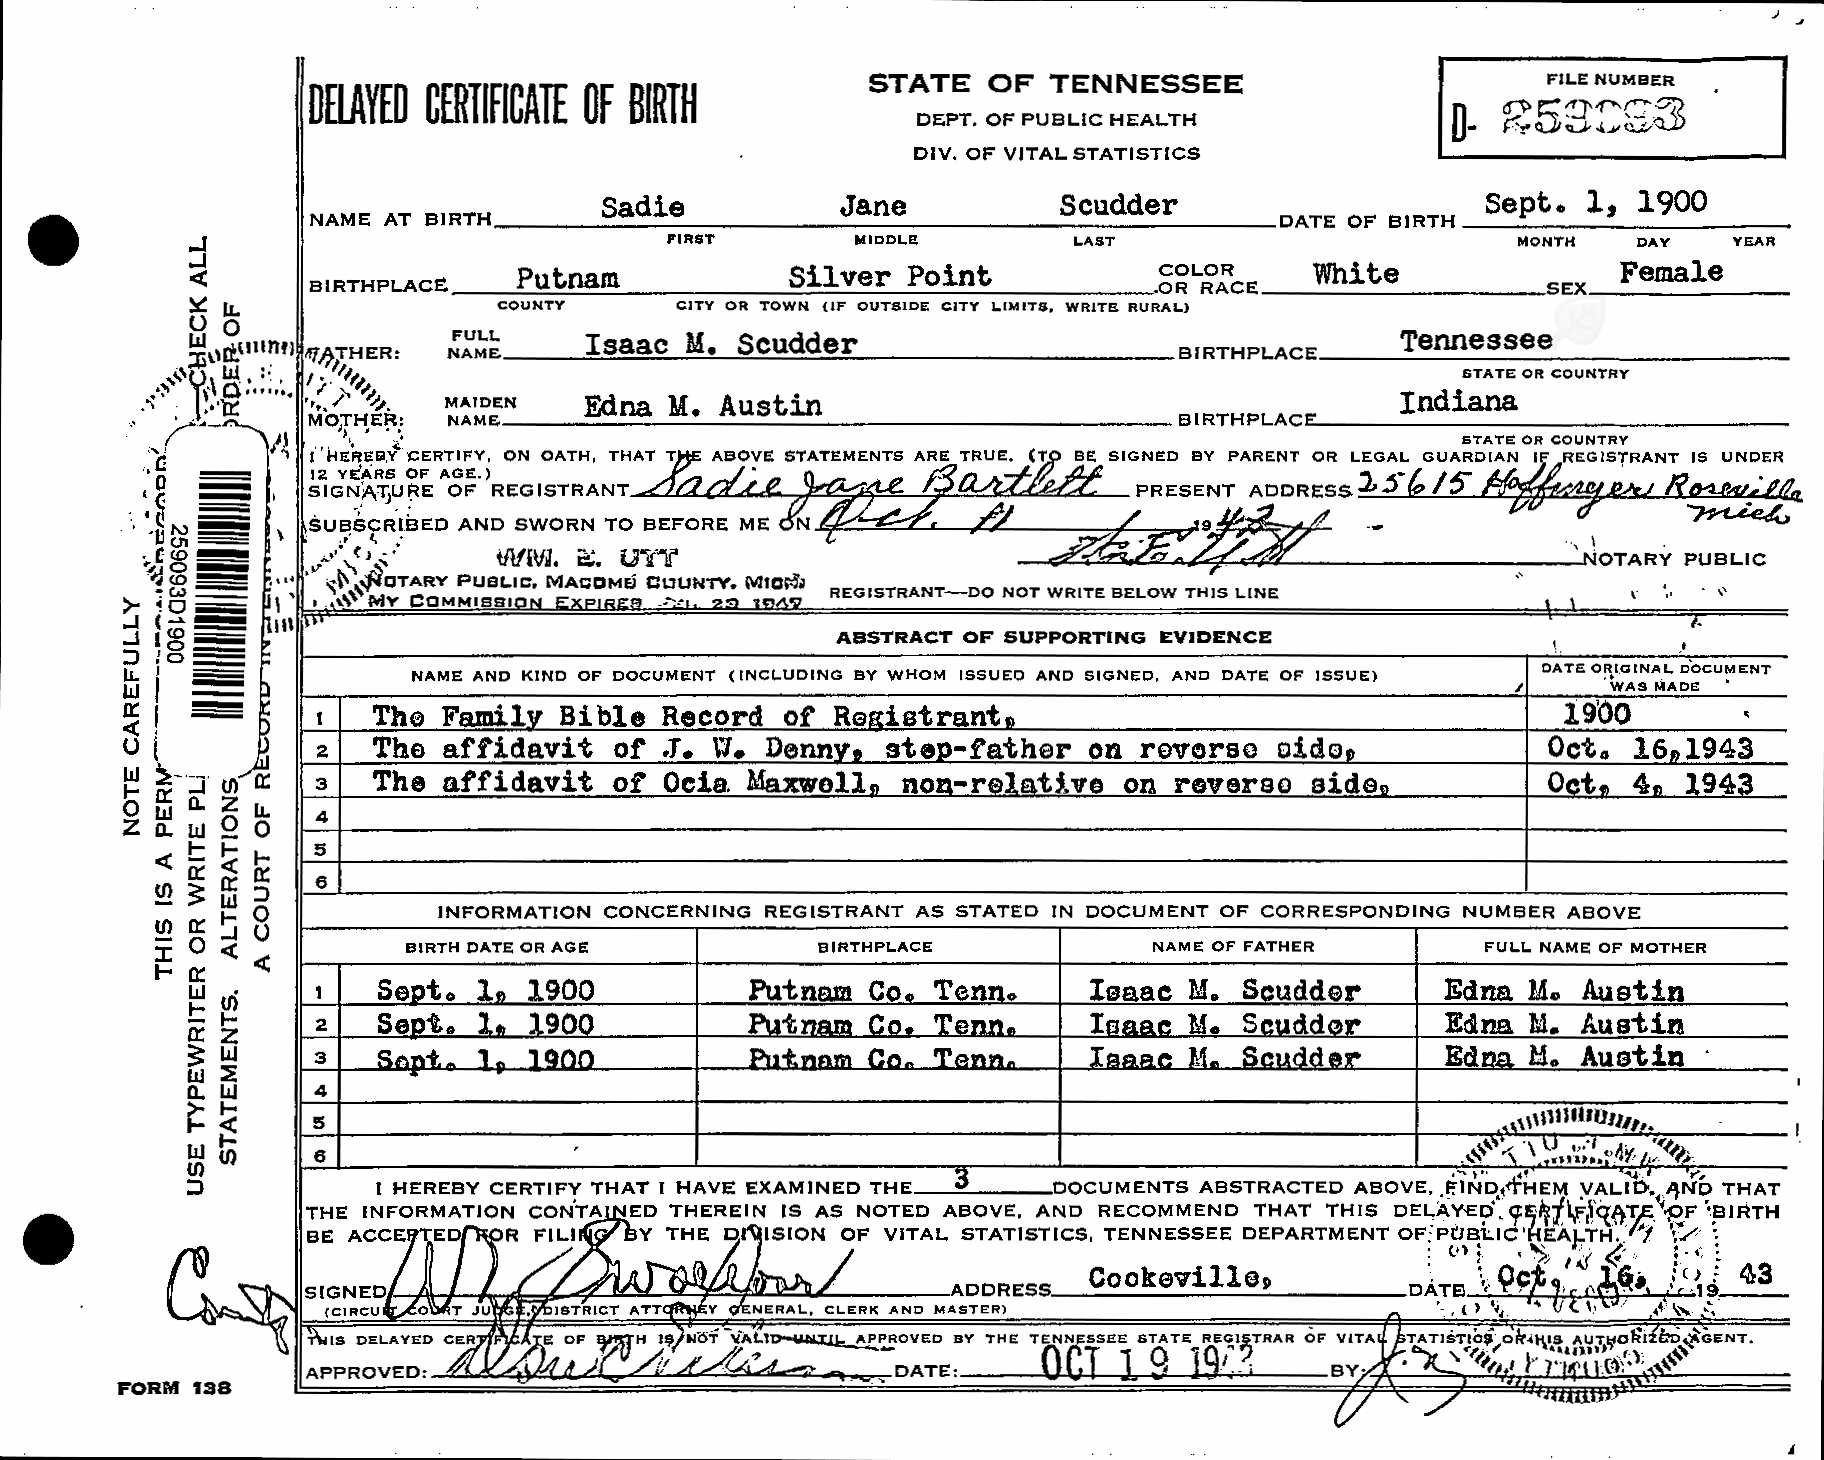 DELAYED CERTIFICATE OF BIRTH
STATE OF TENNESSEE
DEPT. OF PUBLIC HEALTH
DIV. OF VITAL STATISTICS
FILE NUMBER
D- 259093
NAME AT BIRTH Sadie Jane Scudder DATE OF BIRTH Sept. 1, 1900
FIRST MIDDLE LAST MONTH DAY YEAR
BIRTHPLACE Putnam Silver Point COLOR OR RACE White SEX Female
COUNTY CITY OR TOWN (IF OUTSIDE CITY LIMITS, WRITE RURAL)
FATHER: FULL NAME Isaac M. Scudder BIRTHPLACE Tennessee
STATE OR COUNTRY
MOTHER: MAIDEN NAME Edna M. Austin BIRTHPLACE Indiana
STATE OR COUNTRY
I HEREBY CERTIFY, ON OATH, THAT THE ABOVE STATEMENTS ARE TRUE. (TO BE SIGNED BY PARENT OR LEGAL GUARDIAN IF REGISTRANT IS UNDER
12 YEARS OF AGE.)
SIGNATURE OF REGISTRANT Sadie Jane Bartlett PRESENT ADDRESS 25615 Roseville
Mich
SUBSCRIBED AND SWORN TO BEFORE ME ON Oct. 11 1943
WM. E. UTT NOTARY PUBLIC
NOTARY PUBLIC, MACOMB COUNTY, MICH.
MY COMMISSION EXPIRES 1947
REGISTRANT—DO NOT WRITE BELOW THIS LINE
ABSTRACT OF SUPPORTING EVIDENCE
NAME AND KIND OF DOCUMENT (INCLUDING BY WHOM ISSUED AND SIGNED, AND DATE OF ISSUE) DATE ORIGINAL DOCUMENT WAS MADE
1 The Family Bible Record of Registrant, 1900
2 The affidavit of J. W. Denny, step-father on reverse side, Oct. 16,1943
3 The affidavit of Ocia Maxwell, non-relative on reverse side, Oct, 4, 1943
4
5
6
INFORMATION CONCERNING REGISTRANT AS STATED IN DOCUMENT OF CORRESPONDING NUMBER ABOVE
BIRTH DATE OR AGE BIRTHPLACE NAME OF FATHER FULL NAME OF MOTHER
1 Sept. 1, 1900 Putnam Co. Tenn. Isaac M. Scudder Edna M. Austin
2 Sept. 1, 1900 Putnam Co. Tenn. Isaac M. Scudder Edna M. Austin
3 Sept. 1, 1900 Putnam Co. Tenn. Isaac M. Scudder Edna M. Austin
4
5
6
I HEREBY CERTIFY THAT I HAVE EXAMINED THE 3 DOCUMENTS ABSTRACTED ABOVE, FIND THEM VALID, AND THAT
THE INFORMATION CONTAINED THEREIN IS AS NOTED ABOVE, AND RECOMMEND THAT THIS DELAYED CERTIFICATE OF BIRTH
BE ACCEPTED FOR FILING BY THE DIVISION OF VITAL STATISTICS, TENNESSEE DEPARTMENT OF PUBLIC HEALTH.
SIGNED ADDRESS Cookeville, DATE Oct. 16, 1943
(CIRCUIT COURT JUDGE, DISTRICT ATTORNEY GENERAL, CLERK AND MASTER)
THIS DELAYED CERTIFICATE OF BIRTH IS NOT VALID UNTIL APPROVED BY THE TENNESSEE STATE REGISTRAR OF VITAL STATISTICS OR HIS AUTHORIZED AGENT.
APPROVED: DATE: OCT 19 1943 BY
FORM 138
NOTE CAREFULLY
THIS IS A PERM
USE TYPEWRITER OR WRITE PL CHECK ALL
STATEMENTS. ALTERATIONS ORDER OF
A COURT OF RECORD
259093D1900